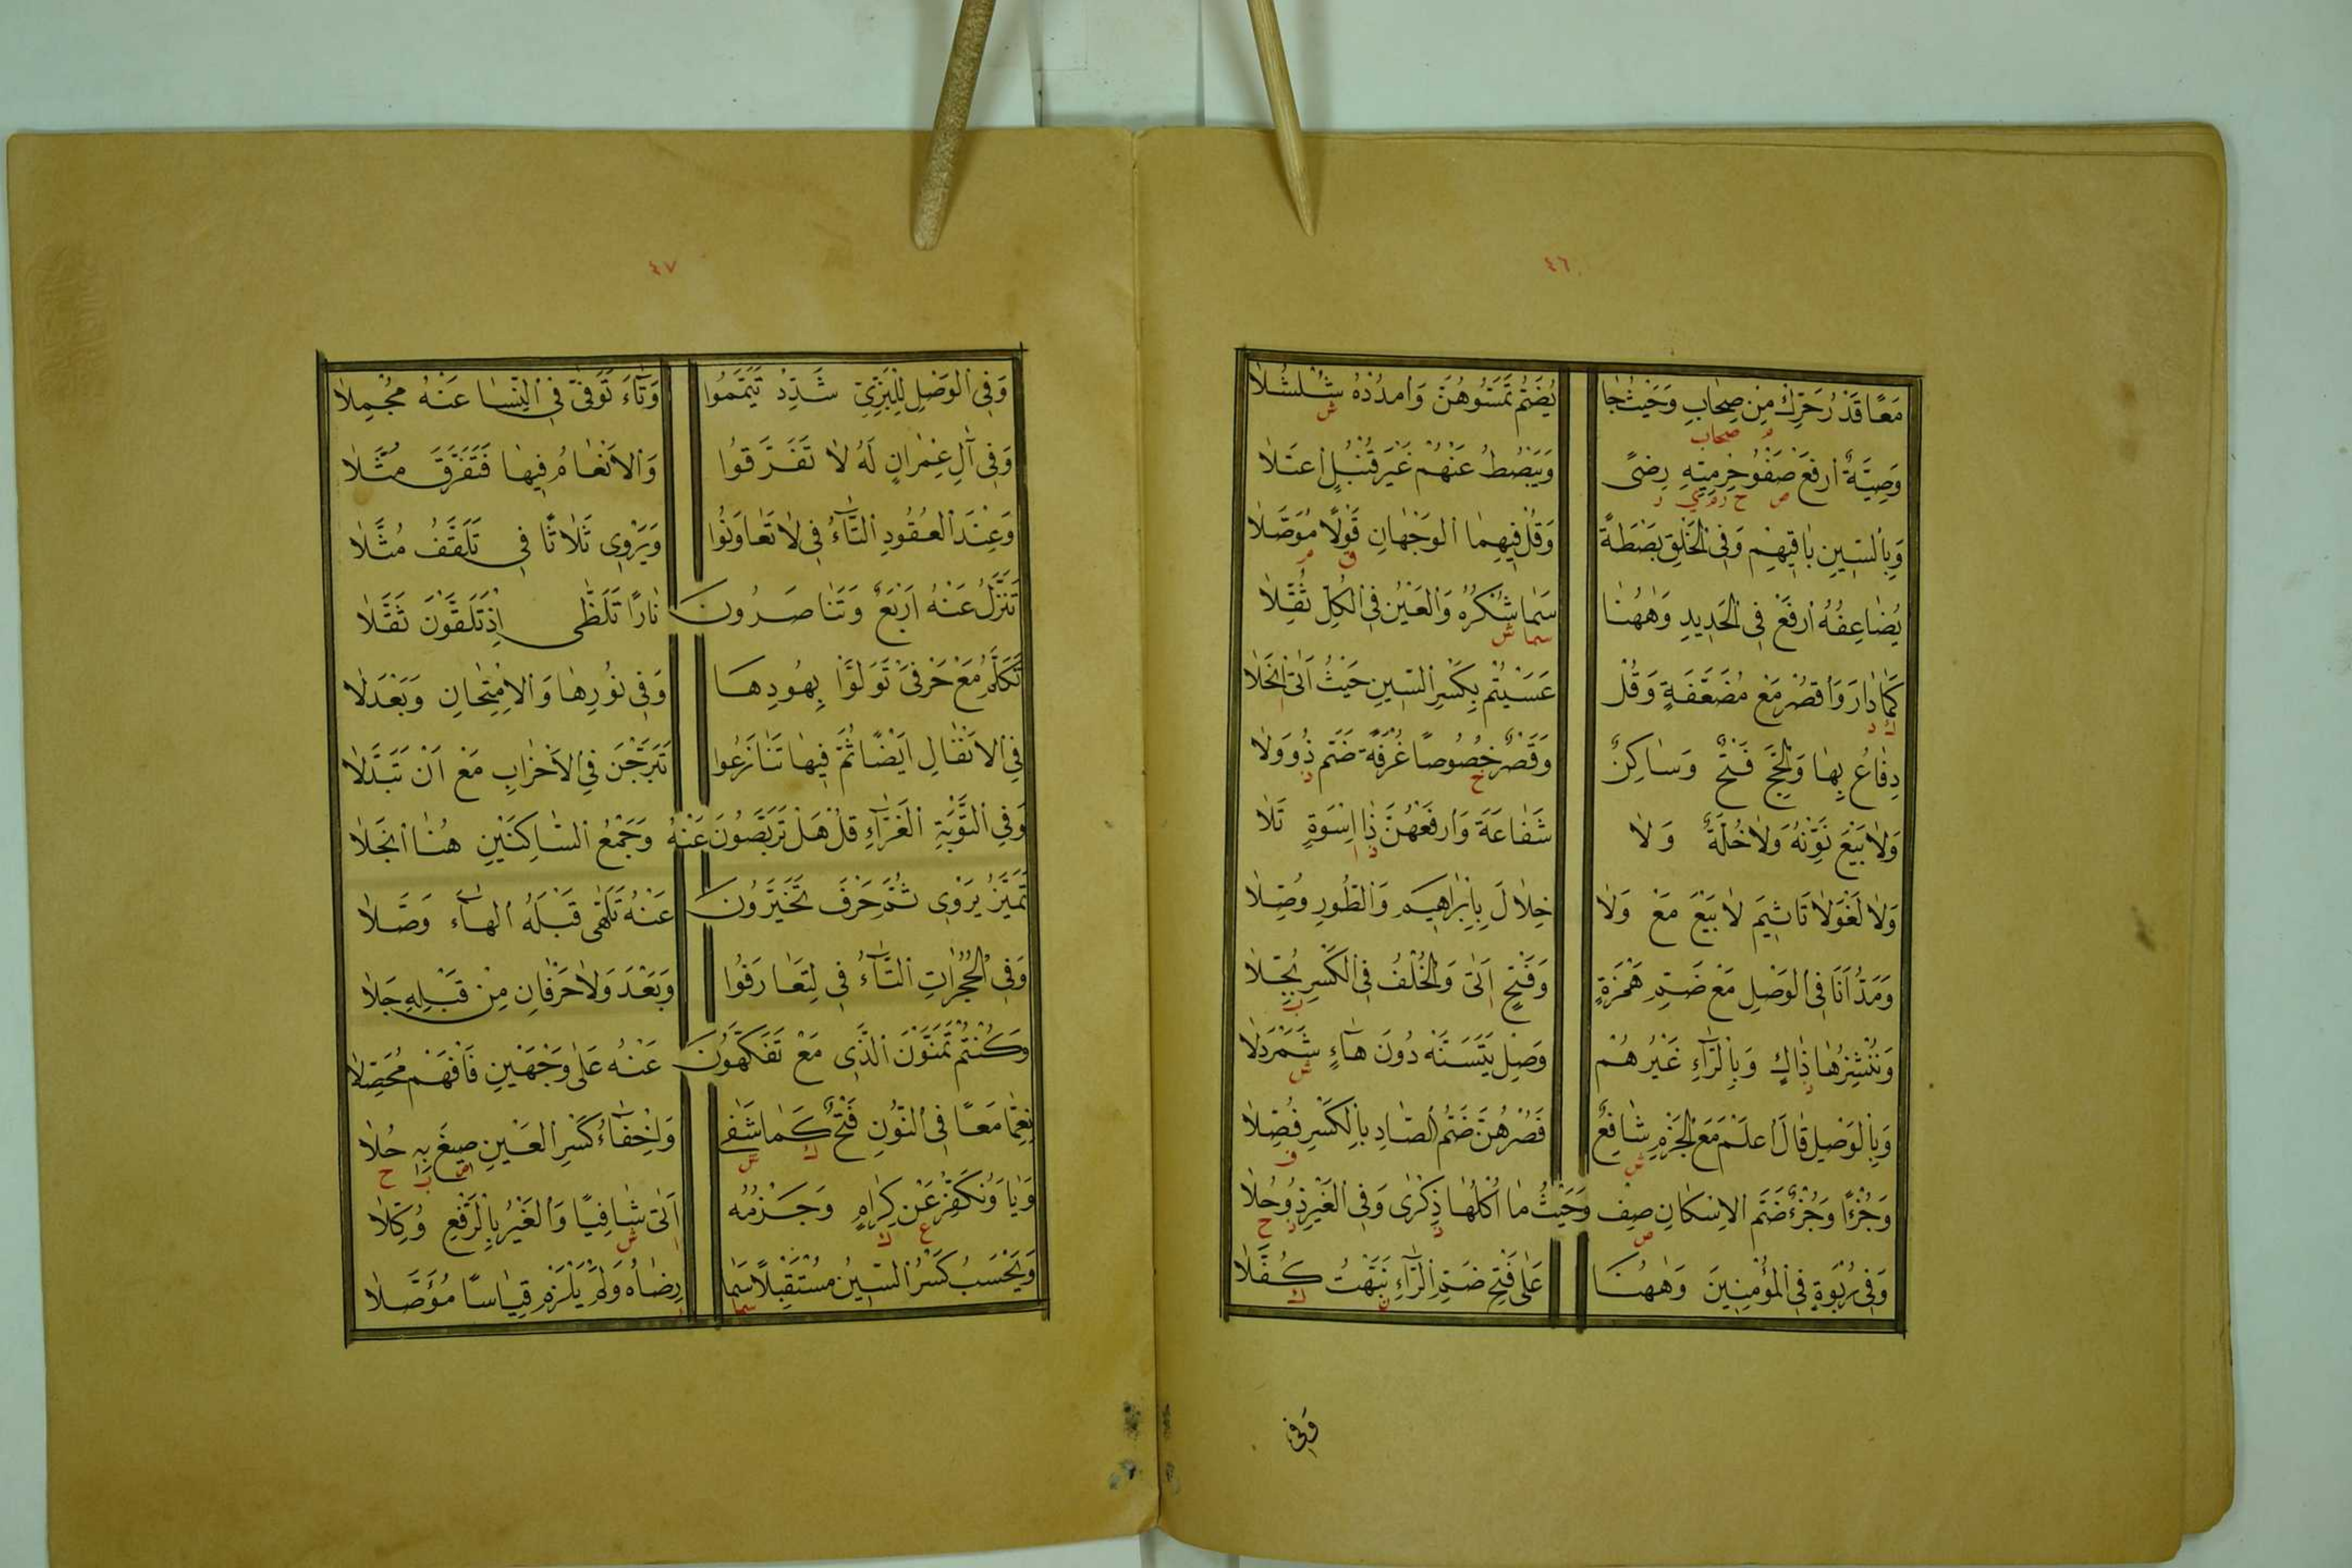 ٤٦
مَعًا قَدْرُ حَرِّكْ مِنْ صِحَابٍ وَحَيْثُ جَا يُضَمُّ تَمَسُّوهُنَّ وَامْدُدْهُ شُلْشُلَا
ش
م صحاب
وَصِيَّةٌ ارْفَعْ صَفْوُ حِرْمِيِّهِ رِضًى وَيَبْصُطُ عَنْهُمْ غَيْرَ قُنْبُلٍ اعْتَلَا
ص ر
وَبِالسِّينِ بَاقِيهِمْ وَفِي الْخَلْقِ بَصْطَةً وَقُلْ فِيهِمَا الْوَجْهَانِ قَوْلًا مُوَصَّلَا
ق م
يُضَاعِفُهُ ارْفَعْ فِي الْحَدِيدِ وَهٰهُنَا سَمَا شُكْرُهُ وَالْعَيْنُ فِي الْكُلِّ ثُقِّلَا
سما ش
كَمَا دَارَ وَاقْصُرْ مَعْ مُضَعَّفَةٍ وَقُلْ عَسَيْتُمْ بِكَسْرِ السِّينِ حَيْثُ اَتَى انْجَلَا
ك د ا
دِفَاعُ بِهَا وَالْحَجِّ فَتْحٌ وَسَاكِنٌ وَقَصْرٌ خُصُوصًا غُرْفَةً ضَمَّ ذُو وِلَا
خ ذ
وَلَا بَيْعَ نَوِّنْهُ وَلَا خُلَّةٌ وَلَا شَفَاعَةَ وَارْفَعْهُنَّ ذَا اِسْوَةٍ تَلَا
ذ ا
وَلَا لَغْوَ لَا تَأْثِيمَ لَا بَيْعَ مَعْ وَلَا خِلَالَ بِاِبْرَاهِيمَ وَالطُّورِ وُصِّلَا
وَمَدُّ اَنَا فِي الْوَصْلِ مَعْ ضَمِّ هَمْزَةٍ وَفَتْحٍ اَتَى وَالْخُلْفُ فِي الْكَسْرِ بُجِّلَا
ا ب
وَنُنْشِزُهَا ذَاكٍ وَبِالرَّاءِ غَيْرُهُمْ وَصِلْ يَتَسَنَّهْ دُونَ هَاءٍ شَمَرْدَلَا
ذ ش
وَبِالْوَصْلِ قَالَ اعْلَمْ مَعَ الْجَزْمِ شَافِعٌ فَصُرْهُنَّ ضَمُّ الصَّادِ بِالْكَسْرِ فُصِّلَا
ش ف
وَجُزْءًا وَجُزْءٌ ضَمَّ الْاِسْكَانِ صِفْ وَحَيْثُ مَا اُكْلُهَا ذِكْرَى وَفِي الْغَيْرِ ذُو حُلَا
ص ذ ذ ح
وَفِي رُبْوَةٍ فِي الْمُؤْمِنِينَ وَهٰهُنَا عَلَى فَتْحِ ضَمِّ الرَّاءِ نَبَّهْتُ كُفَّلَا
ن ك
وَفِي
٤٧
وَفِي الْوَصْلِ لِلْبَزِّيِّ شَدِّدْ تَيَمَّمُوا وَتَاءَ تَوَفَّى فِي النِّسَا عَنْهُ مُجْمِلَا
وَفِي آلِ عِمْرَانٍ لَهُ لَا تَفَرَّقُوا وَالْاَنْعَامُ فِيهَا فَتَفَرَّقَ مُثَّلَا
وَعِنْدَ الْعُقُودِ التَّاءُ فِي لَا تَعَاوَنُوا وَيَرْوِي ثَلَاثًا فِي تَلَقَّفُ مُثَّلَا
تَنَزَّلُ عَنْهُ اَرْبَعٌ وَتَنَاصَرُونَ نَارًا تَلَظَّى اِذْ تَلَقَّوْنَ ثَقَّلَا
تَكَلَّمُ مَعْ حَرْفَيْ تَوَلَّوْا بِهُودِهَا وَفِي نُورِهَا وَالْاِمْتِحَانِ وَبَعْدَ لَا
فِي الْاَنْفَالِ اَيْضًا ثُمَّ فِيهَا تَنَازَعُوا تَبَرَّجْنَ فِي الْاَحْزَابِ مَعْ اَنْ تَبَدَّلَا
وَفِي التَّوْبَةِ الْغَرَّاءِ قُلْ هَلْ تَرَبَّصُونَ عَنْهُ وَجَمْعُ السَّاكِنَيْنِ هُنَا انْجَلَا
تَمَيَّزُ يَرْوِي ثُمَّ حَرْفَ تَخَيَّرُونَ عَنْهُ تَلَهَّى قَبْلَهُ الْهَاءَ وَصَّلَا
وَفِي الْحُجُرَاتِ التَّاءُ فِي لِتَعَارَفُوا وَبَعْدَ وَلَا حَرْفَانِ مِنْ قَبْلِهِ جَلَا
وَكُنْتُمْ تَمَنَّوْنَ الَّذِي مَعْ تَفَكَّهُونَ عَنْهُ عَلَى وَجْهَيْنِ فَافْهَمْ مُحَصِّلَا
نِعِمَّا مَعًا فِي النُّونِ فَتْحٌ كَمَا شَفَى وَاِخْفَاءُ كَسْرِ الْعَيْنِ صِيغَ بِهِ حُلَا
ك ش ص ب ح
وَيَا وَنُكَفِّرْ عَنْ كِرَامٍ وَجَزْمُهُ اَتَى شَافِيًا وَالْغَيْرُ بِالرَّفْعِ وُكِّلَا
ع ك ا ش
وَيَحْسَبُ كَسْرُ السِّينِ مُسْتَقْبِلًا سَمَا رِضَاهُ وَلَمْ يَلْزَمْ قِيَاسًا مُؤَصَّلَا
سما ر